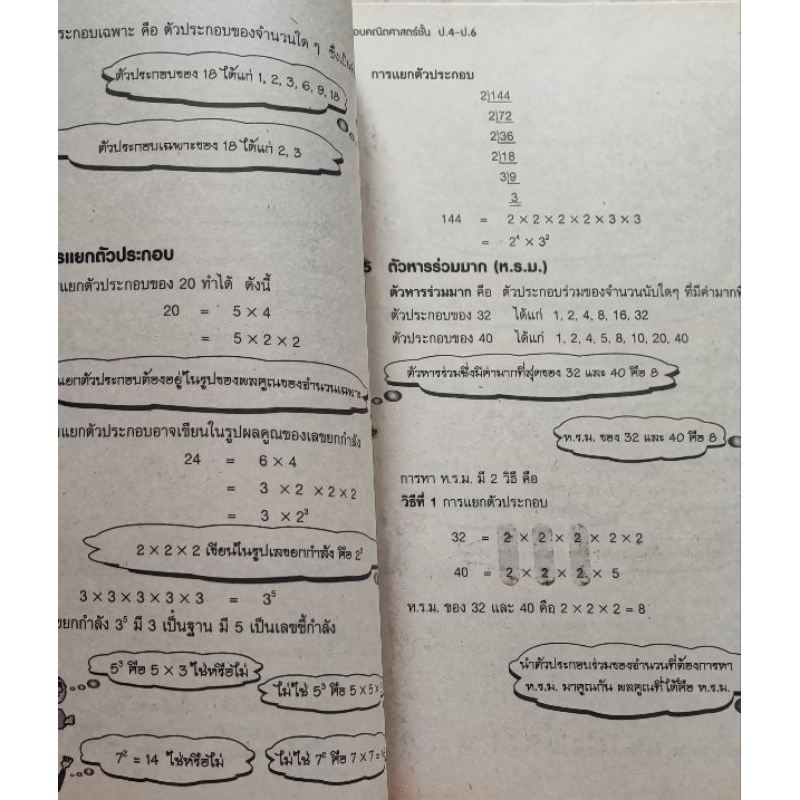 ระกอบเฉพาะ คือ ตัวประกอบของจำนวนใด ๆ
ตัวประกอบของ 18 ได้แก่ 1, 2, 3, 6, 9, 18
ตัวประกอบเฉพาะของ 18 ได้แก่ 2, 3
รแยกตัวประกอบ
แยกตัวประกอบของ 20 ทำได้ ดังนี้
20 = 5 × 4
= 5 × 2 × 2
แยกตัวประกอบต้องอยู่ในรูปของผลคูณของจำนวนเฉพาะ
แยกตัวประกอบอาจเขียนในรูปผลคูณของเลขยกกำลัง
24 = 6 × 4
= 3 × 2 × 2 × 2
= 3 × 2³
2 × 2 × 2 เขียนในรูปเลขยกกำลัง คือ 2³
3 × 3 × 3 × 3 × 3 = 3⁵
ยกกำลัง 3⁵ มี 3 เป็นฐาน มี 5 เป็นเลขชี้กำลัง
5³ คือ 5 × 3 ใช่หรือไม่
ไม่ใช่ 5³ คือ 5 × 5 ×
7² = 14 ใช่หรือไม่
ไม่ใช่ 7² คือ 7 × 7 =
อบคณิตศาสตร์ชั้น ป.4-ป.6
การแยกตัวประกอบ
2)144
2)72
2)36
2)18
3)9
3
144 = 2 × 2 × 2 × 2 × 3 × 3
= 2⁴ × 3²
5 ตัวหารร่วมมาก (ห.ร.ม.)
ตัวหารร่วมมาก คือ ตัวประกอบร่วมของจำนวนนับใดๆ ที่มีค่ามากที
ตัวประกอบของ 32 ได้แก่ 1, 2, 4, 8, 16, 32
ตัวประกอบของ 40 ได้แก่ 1, 2, 4, 5, 8, 10, 20, 40
ตัวหารร่วมซึ่งมีค่ามากที่สุดของ 32 และ 40 คือ 8
ห.ร.ม. ของ 32 และ 40 คือ 8
การหา ห.ร.ม. มี 2 วิธี คือ
วิธีที่ 1 การแยกตัวประกอบ
32 = 2 × 2 × 2 × 2 × 2
40 = 2 × 2 × 2 × 5
ห.ร.ม. ของ 32 และ 40 คือ 2 × 2 × 2 = 8
นำตัวประกอบร่วมของจำนวนที่ต้องการหา
ห.ร.ม. มาคูณกัน ผลคูณที่ได้คือ ห.ร.ม.